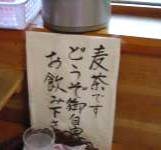 麦茶です
どうぞ御自由
お飲み下